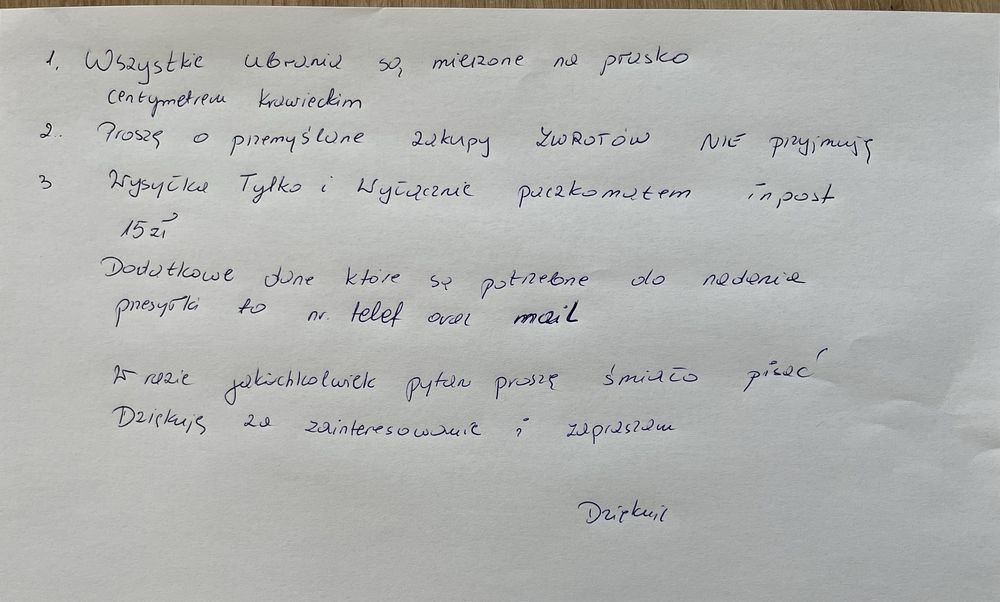 1. Wszystkie ubrania są mierzone na prasko
centymetrem krawieckim
2. Proszę o przemyślane zakupy ZWROTÓW NIE przyjmuję
3 Wysyłka Tylko i Wyłącznie paczkomatem inpost
15 zł
Dodatkowe dane które są potrzebne do nadania
przesyłki to nr. telef oraz mail
W razie jakichkolwiek pytań proszę śmiało pisać
Dziękuję za zainteresowanie i zapraszam
Dziękuję